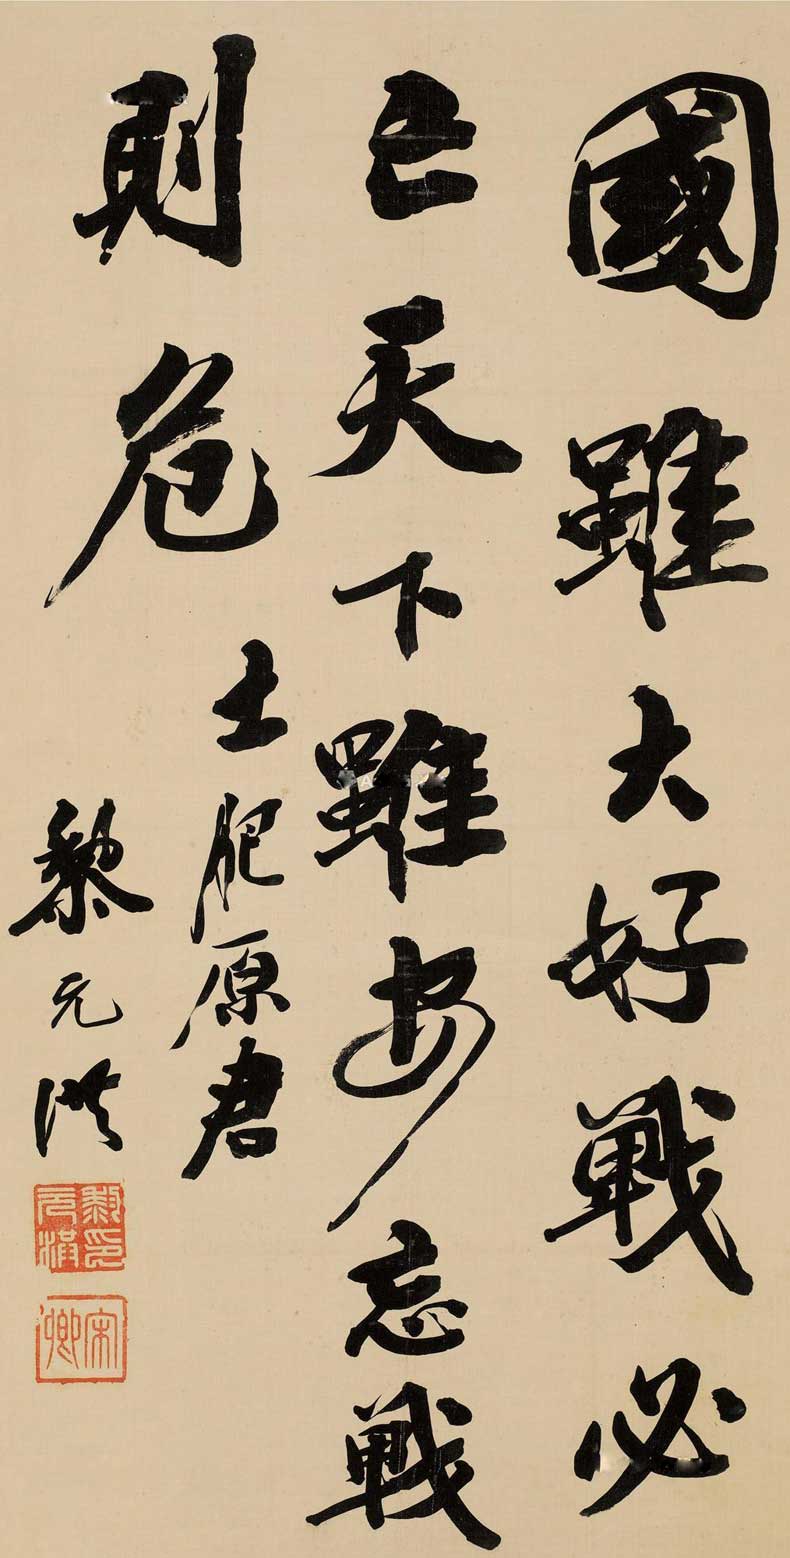 國雖大好戰必
亡天下雖安忘戰
則危
土肥原君
黎元洪
黎元洪印
宋卿